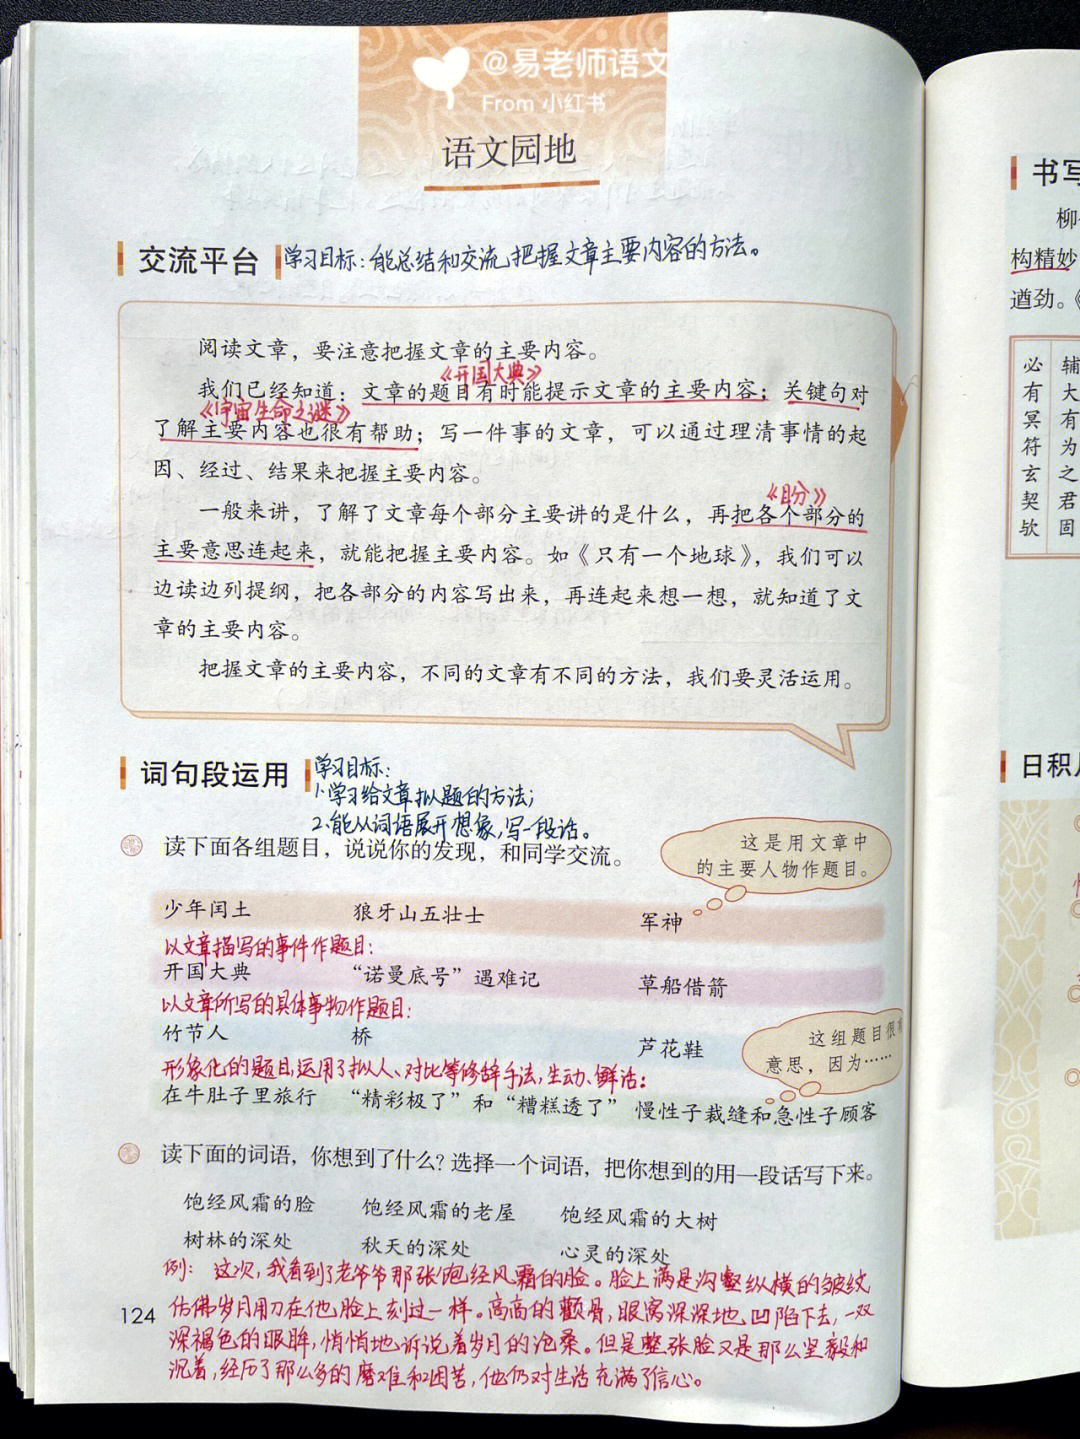 @易老师语文
From 小红书
语文园地
交流平台 学习目标：能总结和交流把握文章主要内容的方法。
阅读文章，要注意把握文章的主要内容。
《开国大典》
我们已经知道：文章的题目有时能提示文章的主要内容；关键句对
《宇宙生命之谜》
了解主要内容也很有帮助；写一件事的文章，可以通过理清事情的起
因、经过、结果来把握主要内容。
《盼》
一般来讲，了解了文章每个部分主要讲的是什么，再把各个部分的
主要意思连起来，就能把握主要内容。如《只有一个地球》，我们可以
边读边列提纲，把各部分的内容写出来，再连起来想一想，就知道了文
章的主要内容。
把握文章的主要内容，不同的文章有不同的方法，我们要灵活运用。
词句段运用 学习目标：
1.学习给文章拟题的方法；
2.能从词语展开想象，写一段话。
读下面各组题目，说说你的发现，和同学交流。
这是用文章中
的主要人物作题目。
少年闰土 狼牙山五壮士 军神
以文章描写的事件作题目：
开国大典 “诺曼底号”遇难记 草船借箭
以文章所写的具体事物作题目：
竹节人 桥 芦花鞋
这组题目很有
意思，因为……
形象化的题目，运用了拟人、对比等修辞手法，生动、鲜活：
在牛肚子里旅行 “精彩极了”和“糟糕透了” 慢性子裁缝和急性子顾客
读下面的词语，你想到了什么？选择一个词语，把你想到的用一段话写下来。
饱经风霜的脸 饱经风霜的老屋 饱经风霜的大树
树林的深处 秋天的深处 心灵的深处
例：这次，我看到了老爷爷那张饱经风霜的脸。脸上满是沟壑纵横的皱纹，
仿佛岁月用刀在他脸上刻过一样。高高的颧骨，眼窝深深地凹陷下去，一双
深褐色的眼眸，悄悄地诉说着岁月的沧桑。但是整张脸又是那么坚毅和
沉着，经历了那么多的磨难和困苦，他仍对生活充满了信心。
124
书写
柳
构精妙
遒劲。《
必有冥符玄契欤
辅大有为之君固
日积